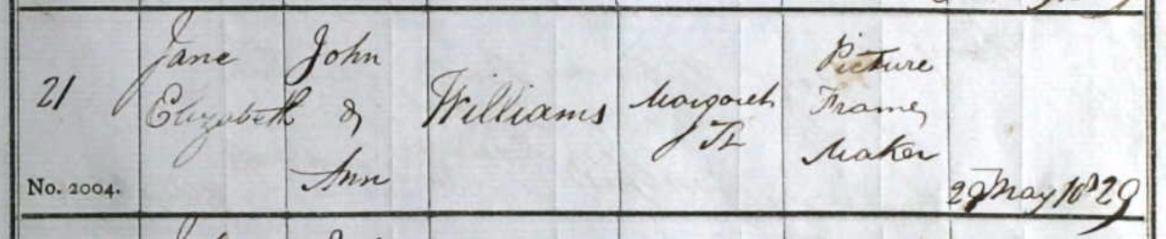 21
No. 2004.
Jane
Elizabeth
John
&
Ann
Williams
Margaret
St
Picture
Frame
Maker
May 1829